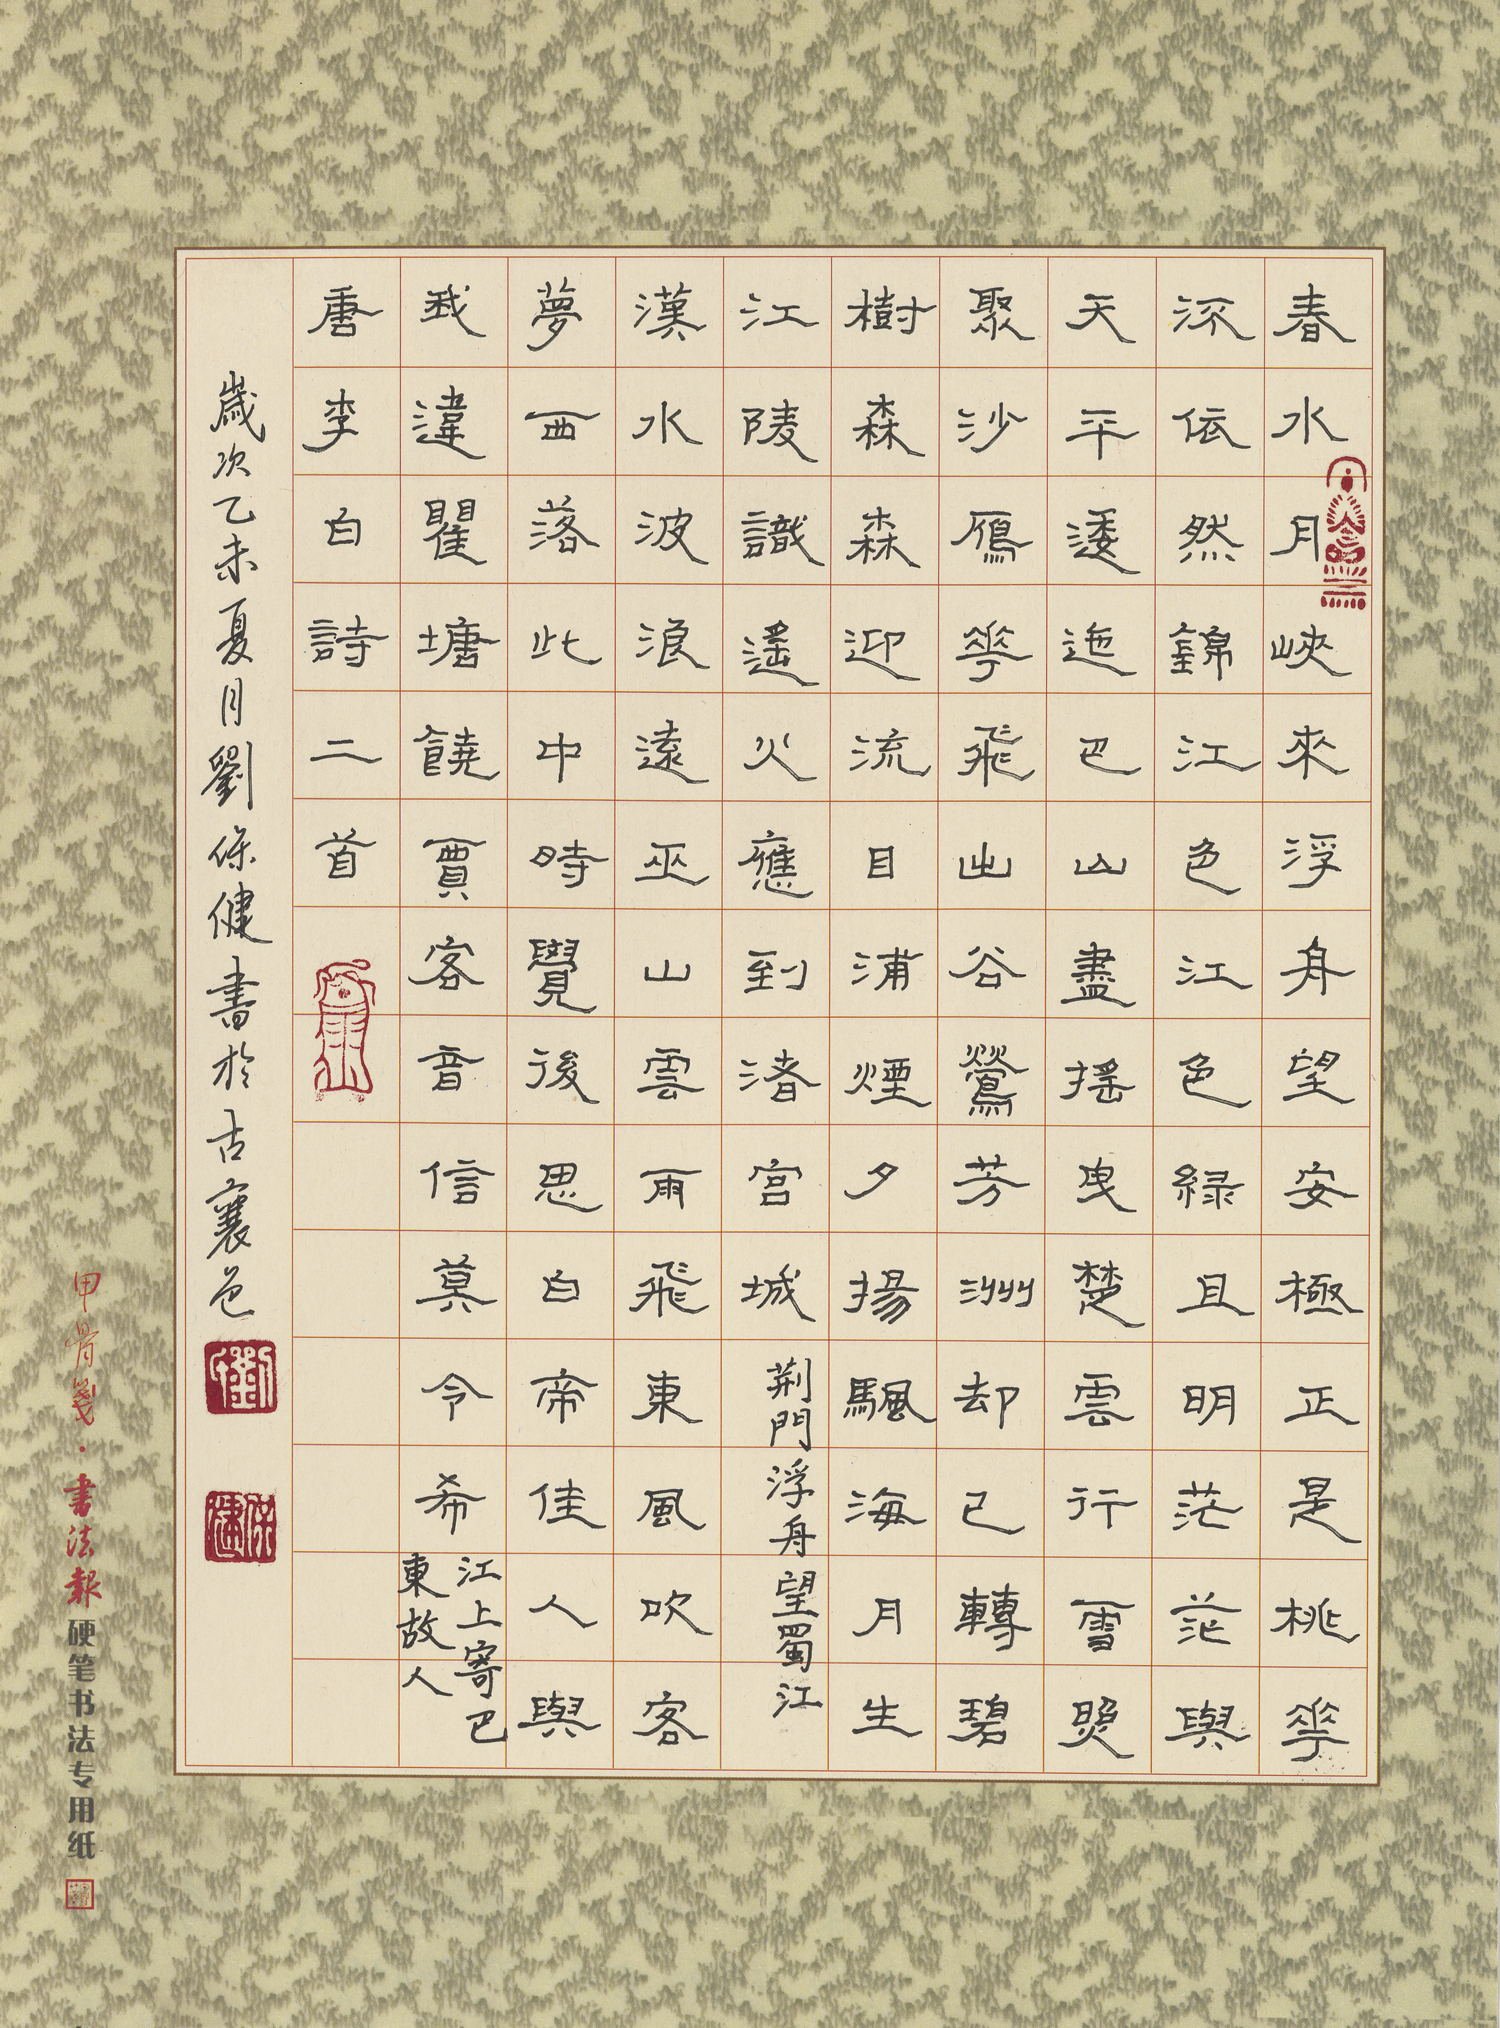 春水月峽來浮舟望安極正是桃華
流依然錦江色江色綠且明茫茫與
天平逶迤巴山盡搖曳楚雲行雪照
聚沙鴈華飛出谷鶯芳洲却已轉碧
樹森森迎流目浦煙夕揚颿海月生
江陵識遙火應到渚宮城
荆門浮舟望蜀江
漢水波浪遠巫山雲雨飛東風吹客
夢西落此中時覺後思白帝佳人與
我違瞿塘饒賈客音信莫令希
江上寄巴
東故人
唐李白詩二首
歲次乙未夏月劉保健書於古襄邑
劉
保健
甲骨箋·書法報硬笔书法专用纸